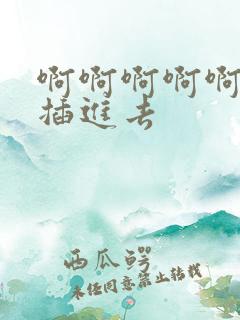 啊啊啊啊啊
插进去
西瓜鳄
未经同意禁止转载